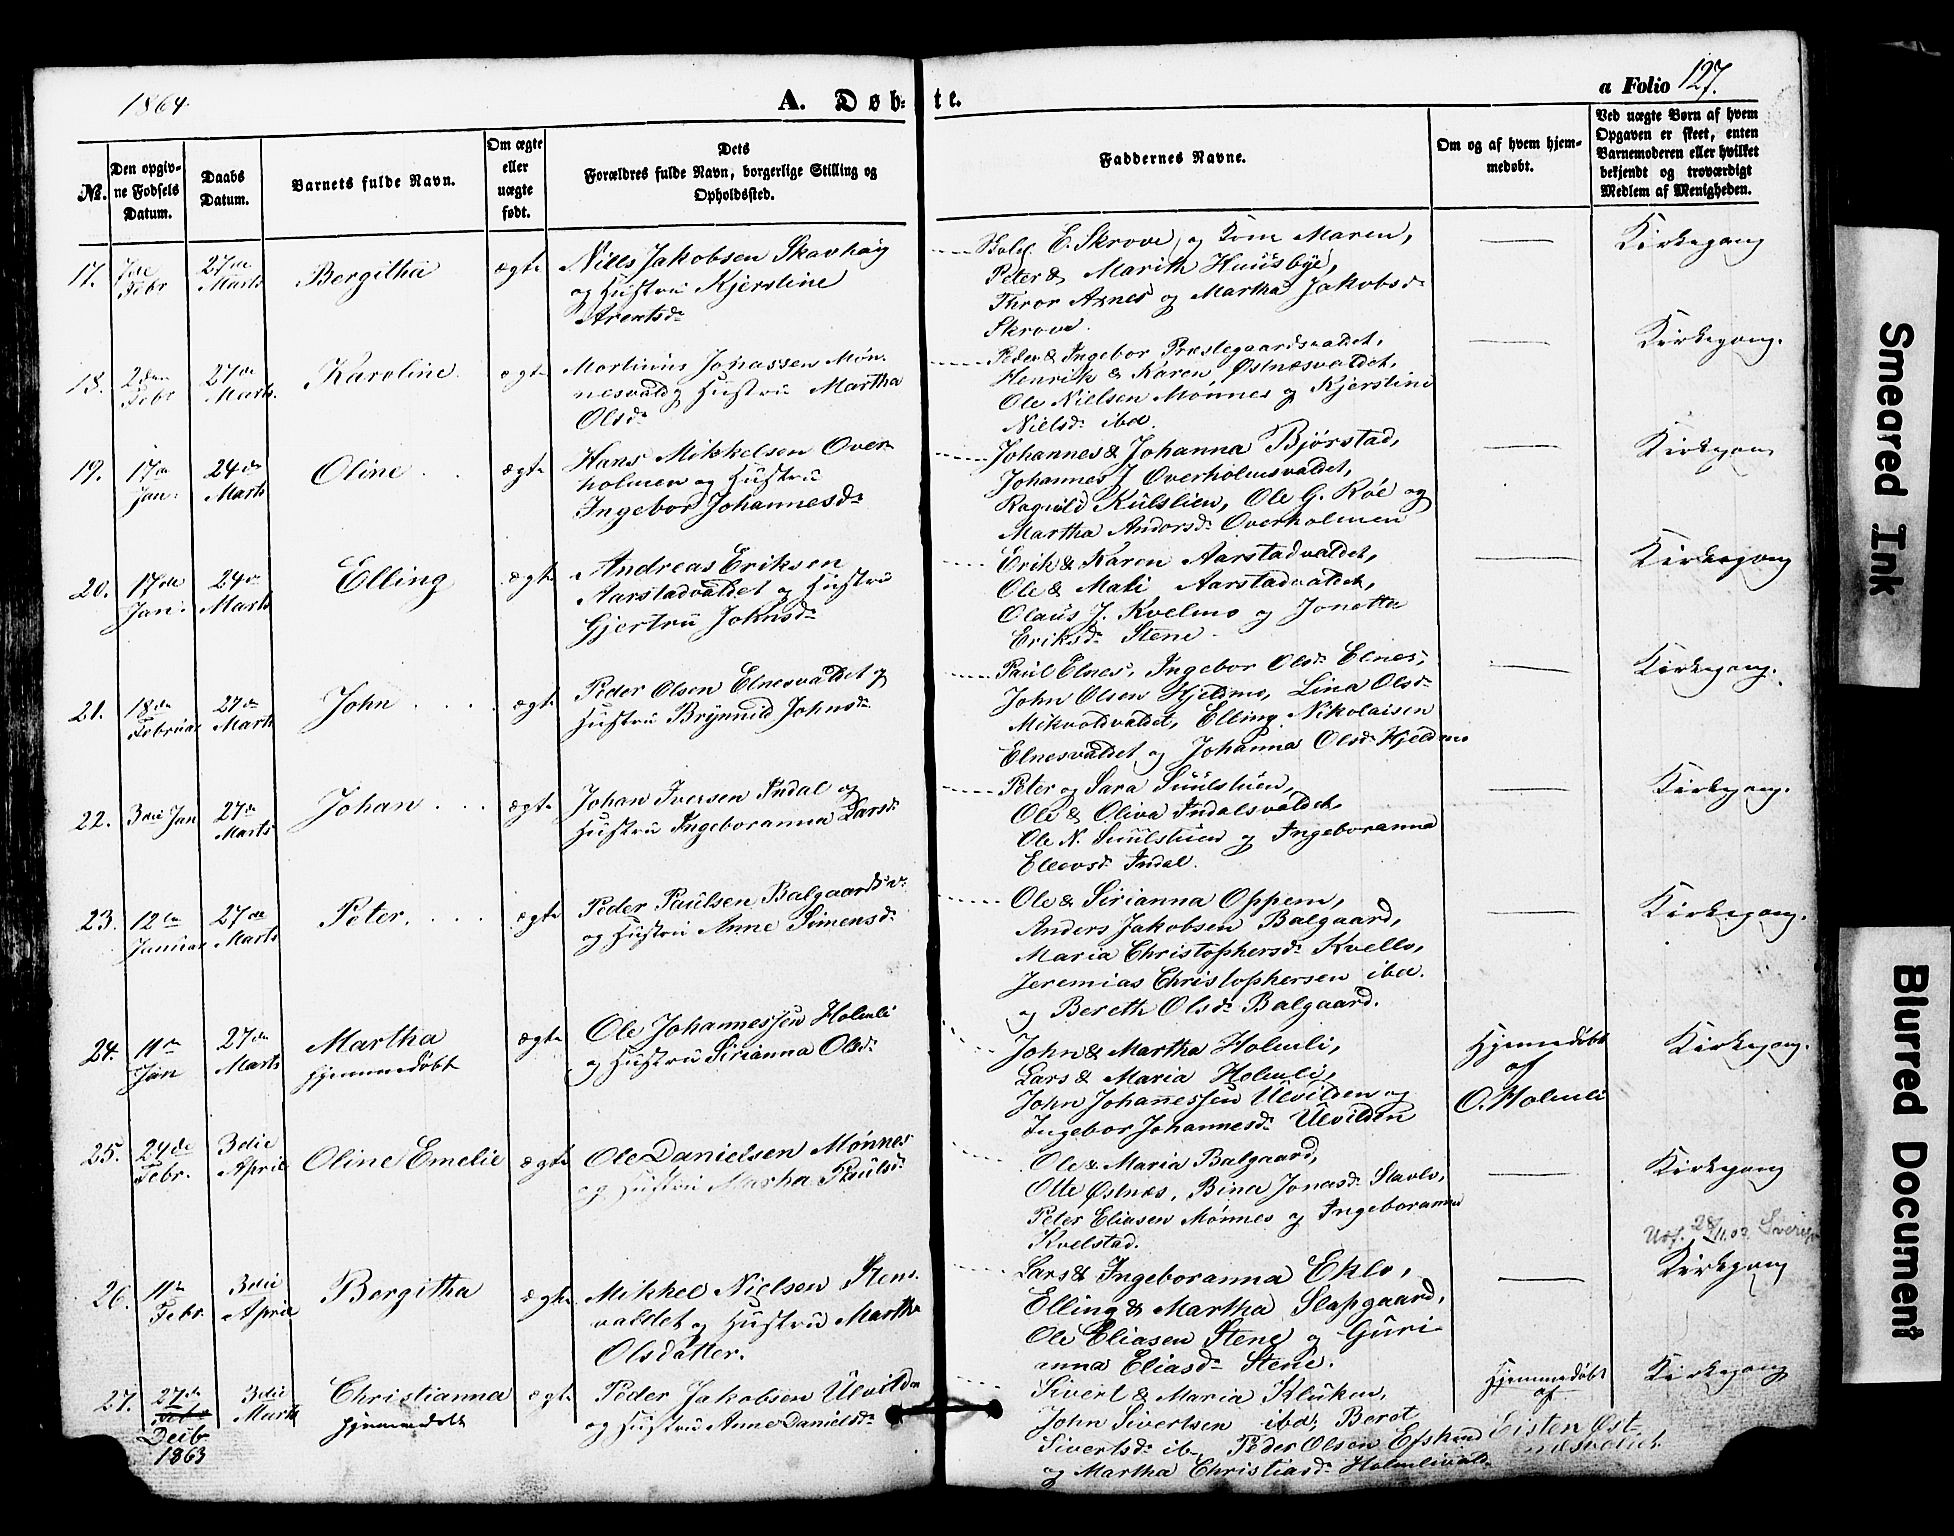 1864.
A. Døb-
te.
a Folio 127.
No.
Den opgiv-
ne Fødsels
Datum.
Daabs
Datum.
Barnets fulde Navn.
Om ægte
eller
uægte
født.
Dets
Forældres fulde Navn, borgerlige Stilling og
Opholdssted.
Faddernes Navne.
Om og af hvem hjem-
medøbt.
Ved uægte Børn af hvem
Opgaven er skeet, enten
Barnemoderen eller hvilket
bekjendt og troværdigt
Medlem af Menigheden.
17.
7de
Febr
27de
Marts
Bergitha
ægte
Niels Jakobsen Skavhaug
og Hustru Kjerstine
Arentsdr
E. Skrove og Kone Maren,
Peter & Marith Huusbye,
Arnes og Martha Jakobsdr
Skrove.
Kirkegang
18.
2den
Febr
27de
Marts.
Karoline.
ægte
Mortinus Johassen Møn-
nesvald og Hustru Martha
Olsdr
Peder & Ingebor Præstegaardsvaldet,
Henrik & Karen Østnæsvaldet,
Ole Nielsen Mønnes og Kjerstine
Nielsdr ibd.
Kirkegang.
19.
17de
Jan.
24de
Marts
Oline
ægte
Hans Mikkelsen Over-
holmen og Hustru
Ingebor Johannesdr
Johannes & Johanna Bjørstad,
Johannes J Overholmsvaldet,
Ragnild Kulslien, Ole G. Røe og
Martha Andersdr Overholmen
Kirkegang
20.
17de
Jan.
24de
Marts
Elling
ægte
Andreas Eriksen
Aarstadvaldet og Hustru
Gjertru Johnsdr
Erik & Karen Aarstadvaldet,
Ole & Mali Aarstadvaldet,
Olaus J. Kvelmo og Jonetta
Eriksdr Stene.
Kirkegang
21.
18de
Februar
27de
Marts
John
ægte
Peder Olsen Elnesvaldet og
Hustru Brynnild Johnsdr
Paul Elnes, Ingebor Olsdr Elnes,
John Olsen Hjeldmo, Lina Olsdr
Mikvoldvaldet, Elling Nikolaisen
Elnesvaldet og Johanna Olsdr Hjeldmo
Kirkegang.
22.
3die Jan
27de
Marts
Johan
ægte
Johan Iversen Indal og
Hustru Ingeboranna Larsdr
Peter og Sara Suulstuen,
Ole & Oliva Indalsvaldet,
Ole N. Suulstuen og Ingeboranna
Ellevsdr Indal.
Kirkegang.
23.
12te
Januar
27de
Marts
Peter.
ægte
Peder Paulsen Balgaardsv.
og Hustru Anne Simensdr
Ole & Sirianna Oppem,
Anders Jakobsen Balgaard,
Maria Christophersdr Kvello,
Jeremias Christophersen ibd.
og Bereth Olsdr Balgaard.
Kirkegang.
24.
11te
Jan
27de
Marts
Martha
hjemmedøbt
ægte
Ole Johannessen Holmli
og Hustru Sirianna Olsdr
John & Martha Holmli,
Lars & Maria Holmli,
John Johannessen Ulvilden og
Ingebor Johannesdr Ulvilden
Hjemmedøbt
af
O. Holmli
Kirkegang.
25.
24de
Febr.
3die
April
Oline Emelie
ægte
Ole Danielsen Mønnes
og Hustru Martha Paulsdr
Ole & Maria Balgaard,
Otte Østnæs, Bina Jonasdr Slavlo,
Peter Eliasen Mønnes og Ingeboranna
Kvelstad.
Kirkegang
26.
11te
Febr.
3die
April
Bergitha
ægte
Mikkel Nielsen Stene-
valdet og Hustru Martha
Olsdatter.
Lars & Ingeboranna Eklo,
Elling & Martha Slapgaard,
Ole Eliasen Stene og Guri-
anna Eliasdr Stene.
Kirkegang
27.
27de
Decbr
1863
3die
Marts
Christianna
hjemmedøbt
ægte
Peder Jakobsen Ulvilden
og Hustru Anne Danielsdr
Sivert & Maria Kluken,
John Sivertsen ibd, Beret
Sivertsdr ib. Peder Olsen
og Martha Christiasdr Holmlivald.
Hjemmedøbt
af
Eisten Øst-
Kirkegang
Smeared Ink
Blurred Document